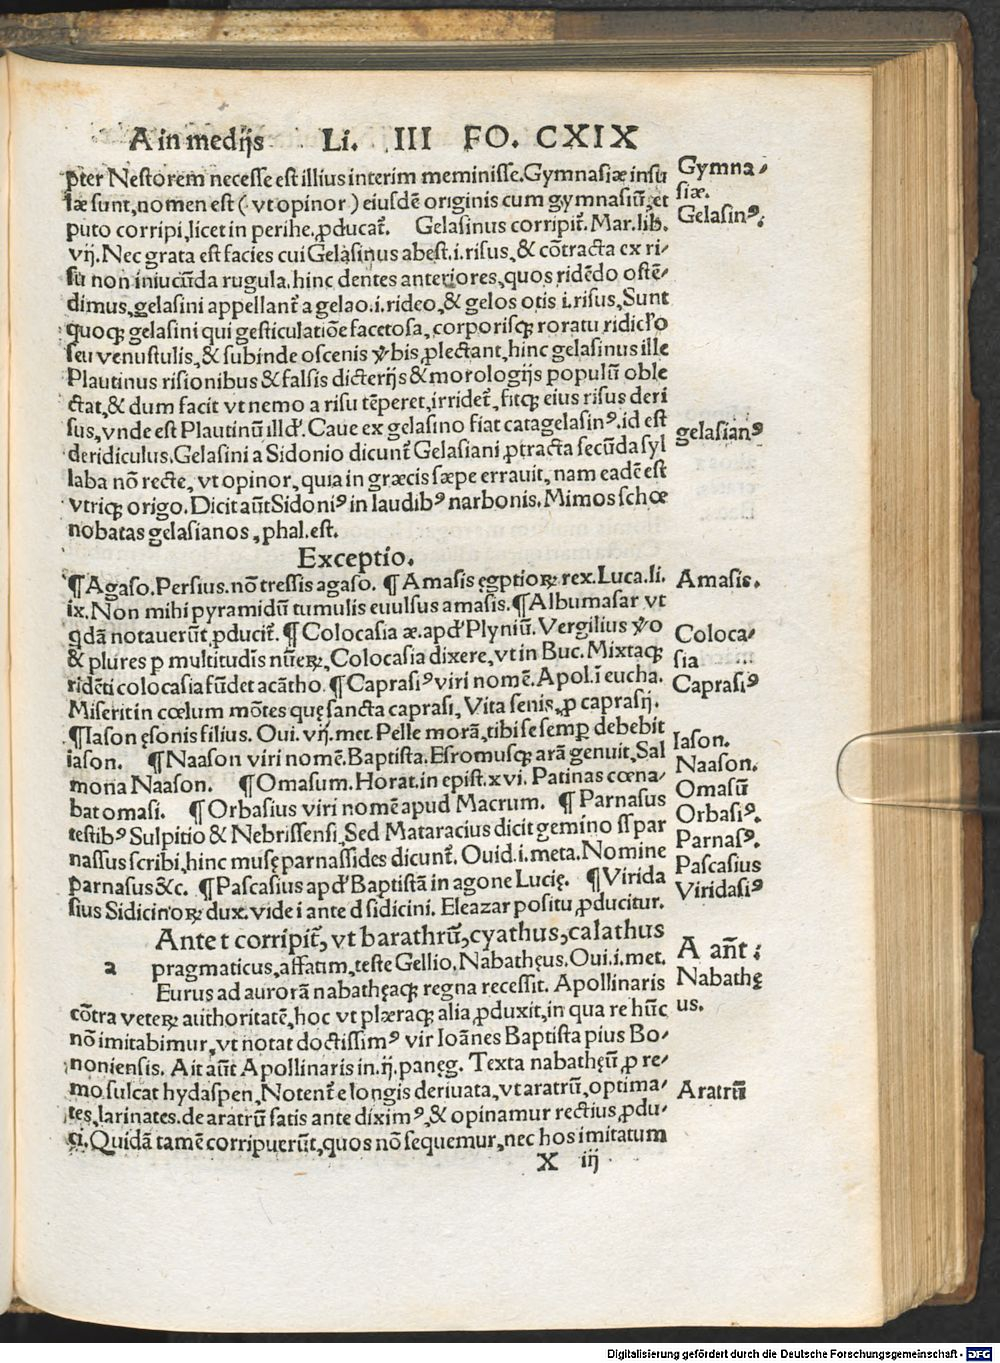 A in medijs Li. III FO. CXIX
pter Nestorem necesse est illius interim meminisse. Gymnasiæ insu
læ sunt, nomen est ( vt opinor ) eiusdē originis cum gymnasiū, et
puto corripi, licet in perihe. ꝓducat᷑. Gelasinus corripit᷑. Mar. lib.
vij. Nec grata est facies cui Gelasinus abest .i. risus, & cōtracta ex ri⸗
su non iniucūda rugula. hinc dentes anteriores, quos ridēdo ostē⸗
dimus, gelasini appellant᷑ a gelao .i. rideo, & gelos otis i. risus, Sunt
quoqꝫ gelasini qui gesticulatiōe facetosa, corporisqꝫ roratu ridicl'o
seu venustulis, & subinde oscenis v̾bis ꝓlectant, hinc gelasinus ille
Plautinus risionibus & falsis dicterijs & morologijs populū oble
ctat, & dum facit vt nemo a risu tēperet, irridet᷑, fitqꝫ eius risus deri
sus, vnde est Plautinū illd'. Caue ex gelasino fiat catagelasinꝰ. id est
deridiculus. Gelasini a Sidonio dicunt᷑ Gelasiani ꝓtracta secūda syl
laba nō recte, vt opinor, quia in græcis sæpe errauit, nam eadē est
vtriqꝫ origo. Dicit aūt Sidoniꝰ in laudibꝰ narbonis. Mimos schœ
nobatas gelasianos, phal. est.
Exceptio.
¶ Agaso. Persius. nō tressis agaso. ¶ Amasis ęgptioꝝ rex. Luca. li.
ix. Non mihi pyramidū tumulis euulsus amasis. ¶ Albumasar vt
qdā notauerūt ꝓducit᷑. ¶ Colocasia æ. apd' Plyniū. Vergilius v̾o
& plures p multitudīs nūeꝝ, Colocasia dixere, vt in Buc. Mixtaqꝫ
ridēti colocasia fūdet acātho. ¶ Caprasiꝰ viri nomē. Apol. ī eucha.
Miserit in cœlum mōtes quę sancta caprasi, Vita senis, ꝓ caprasij.
¶ Iason ęsonis filius. Oui. vij. met. Pelle morā, tibi se semꝑ debebit
iason. ¶ Naason viri nomē. Baptista. Esromusqꝫ arā genuit, Sal
mona Naason. ¶ Omasum. Horat. in epist. xvi. Patinas cœna⸗
bat omasi. ¶ Orbasius viri nomē apud Macrum. ¶ Parnasus
testibꝰ Sulpitio & Nebrissensi, Sed Mataracius dicit gemino ss par
nassus scribi, hinc musę parnassides dicunt᷑. Ouid. i. meta. Nomine
parnasus &c. ¶ Pascasius apd' Baptistā in agone Lucię. ¶ Virida
sius Sidicinoꝝ dux. vide i ante d sidicini. Eleazar positu ꝓducitur.
Ante t corripit᷑, vt barathrū, cyathus, calathus
a pragmaticus, affatim, teste Gellio, Nabathęus. Oui. i. met.
Eurus ad aurorā nabathęaqꝫ regna recessit. Apollinaris
cōtra veteꝝ authoritatē, hoc vt plæraqꝫ alia ꝓduxit, in qua re hūc
nō imitabimur, vt notat doctissimꝰ vir Ioānes Baptista pius Bo⸗
noniensis. Ait aūt Apollinaris in .ij. panęg. Texta nabathęū ꝓ re⸗
mo sulcat hydaspen, Notent᷑ e longis deriuata, vt aratrū, optima⸗
tes, larinates. de aratrū satis ante diximꝰ, & opinamur rectius ꝓdu⸗
ci. Quidā tamē corripuerūt, quos nō sequemur, nec hos imitatum
X iij
Gymna⸗
siæ.
Gelasinꝰ.
gelasianꝰ
Amasis.
Coloca⸗
sia
Caprasiꝰ
Iason.
Naason.
Omasū
Orbasiꝰ.
Parnasꝰ.
Pascasius
Viridasiꝰ
A ant᷑
Nabathę
us.
Aratrū
Digitalisierung gefördert durch die Deutsche Forschungsgemeinschaft - DFG